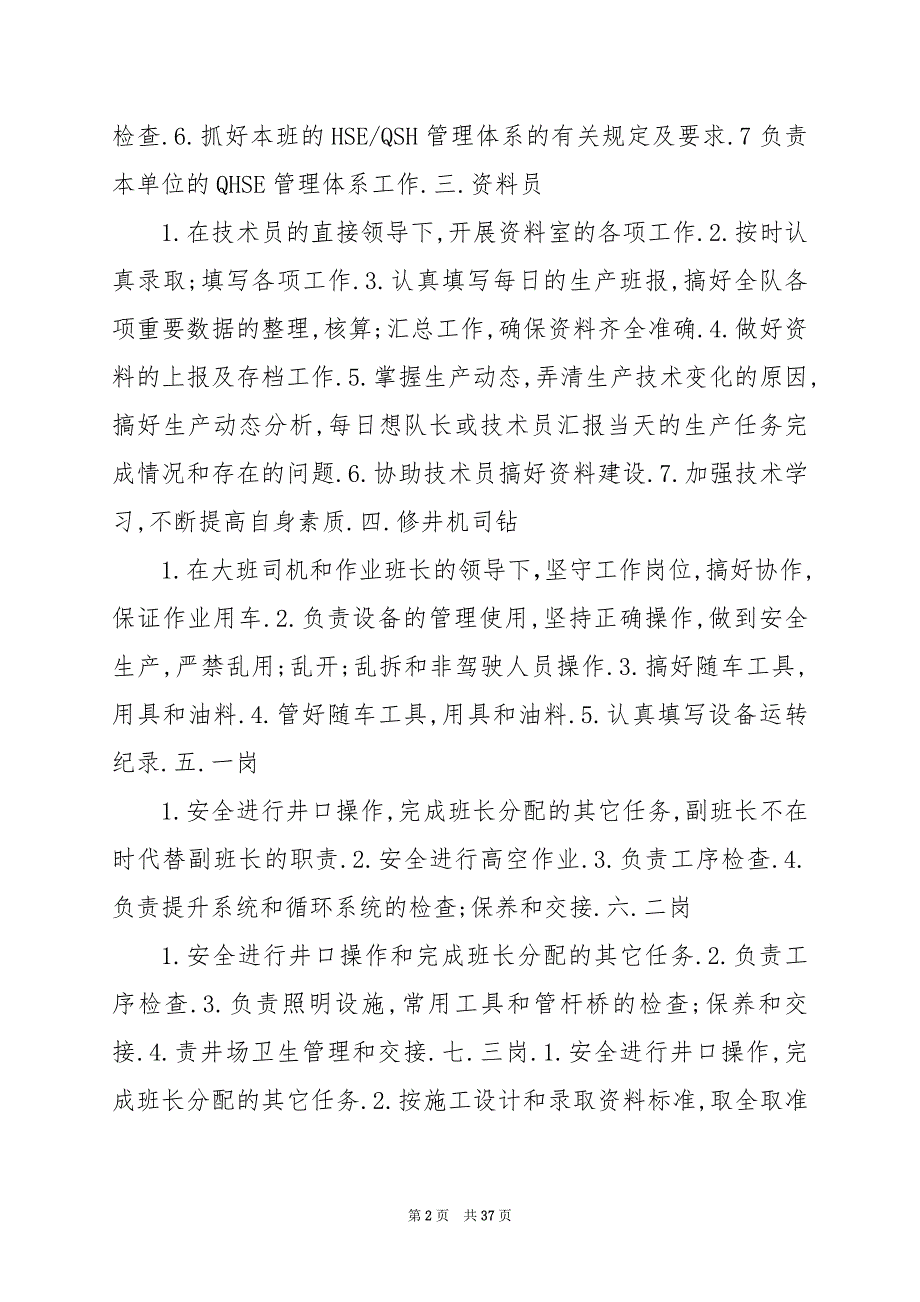 检查.6.抓好本班的HSE/QSH管理体系的有关规定及要求.7负责
本单位的QHSE管理体系工作.三.资料员
1.在技术员的直接领导下,开展资料室的各项工作.2.按时认
真录取;填写各项工作.3.认真填写每日的生产班报,搞好全队各
项重要数据的整理,核算;汇总工作,确保资料齐全准确.4.做好资
料的上报及存档工作.5.掌握生产动态,弄清生产技术变化的原因,
搞好生产动态分析,每日想队长或技术员汇报当天的生产任务完
成情况和存在的问题.6.协助技术员搞好资料建设.7.加强技术学
习,不断提高自身素质.四.修井机司钻
1.在大班司机和作业班长的领导下,坚守工作岗位,搞好协作,
保证作业用车.2.负责设备的管理使用,坚持正确操作,做到安全
生产,严禁乱用;乱开;乱拆和非驾驶人员操作.3.搞好随车工具,
用具和油料.4.管好随车工具,用具和油料.5.认真填写设备运转
纪录.五.一岗
1.安全进行井口操作,完成班长分配的其它任务,副班长不在
时代替副班长的职责.2.安全进行高空作业.3.负责工序检查.4.
负责提升系统和循环系统的检查;保养和交接.六.二岗
1.安全进行井口操作和完成班长分配的其它任务.2.负责工
序检查.3.负责照明设施,常用工具和管杆桥的检查;保养和交
接.4.责井场卫生管理和交接.七.三岗.1.安全进行井口操作,完
成班长分配的其它任务.2.按施工设计和录取资料标准,取全取准
第2页 共37页